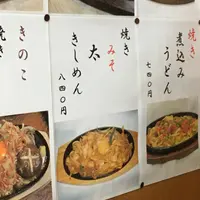 焼き
煮込み
うどん
七四〇円
焼き
みそ
太
きしめん
八四〇円
きのこ
焼き